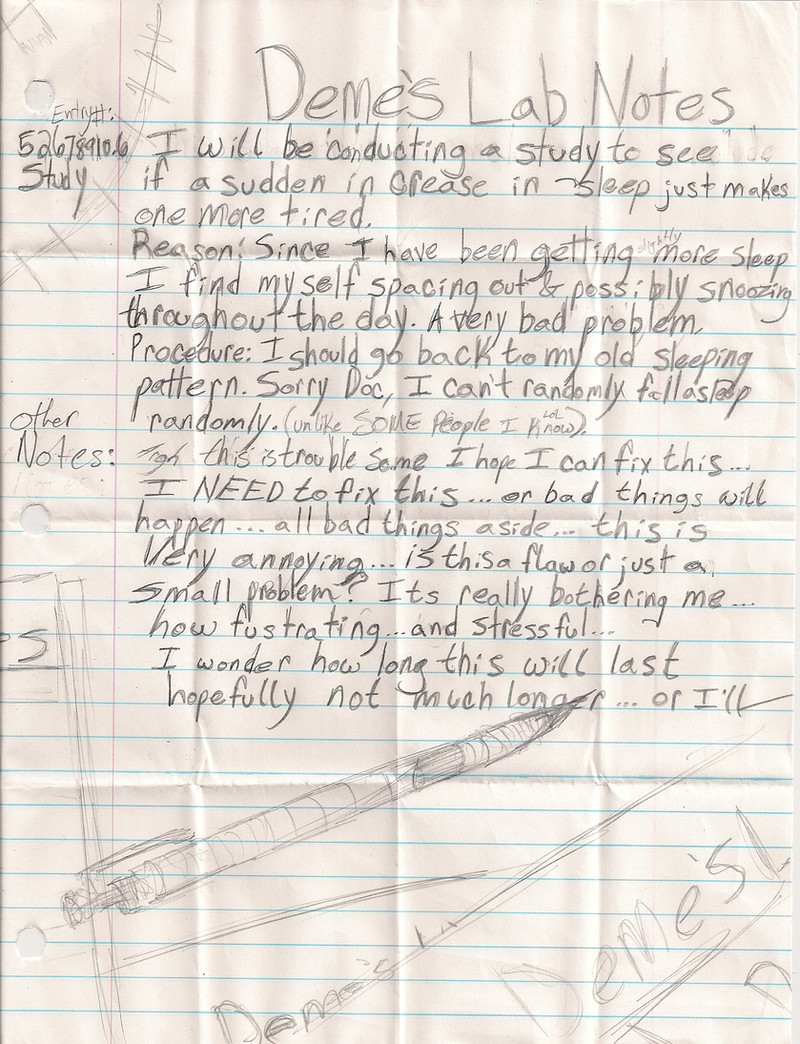 Deme's Lab Notes
Entry#:
52678910.6
Study
I will be conducting a study to see
if a sudden in crease in sleep just makes
one more tired.
Reason: Since I have been getting slightly more sleep
I find myself spacing out & possibly snoozing
throughout the day. A very bad problem.
Procedure: I should go back to my old sleeping
pattern. Sorry Doc, I can't randomly fall asleep
randomly. (unlike SOME People I know LOL).
other
Notes:
this is trouble some I hope I can fix this...
I NEED to fix this... or bad things will
happen... all bad things aside... this is
Very annoying... is this a flaw or just a
small problem? Its really bothering me...
how fustrating... and stressful...
I wonder how long this will last
hopefully not much longer... or I'll
Deme's La
Deme's L